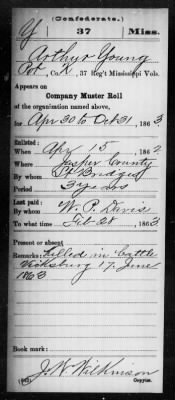 (Confederate.)
Y 37 Miss.
Arthur Young
Pvt, Co. 37 Reg't Mississippi Vols.
Appears on
Company Muster Roll
of the organization named above,
for Apr 30 to Oct 31, 1863
Enlisted:
When Apr 15, 1862
Where Jasper County
By whom Bridges
Period 3 years
Last paid:
By whom W. P. Davis
To what time Feb 28, 1863
Present or absent
Remarks: Killed in battle
Vicksburg 17. June
1863
Book mark:
J. W. Wilkinson
(642) Copyist.